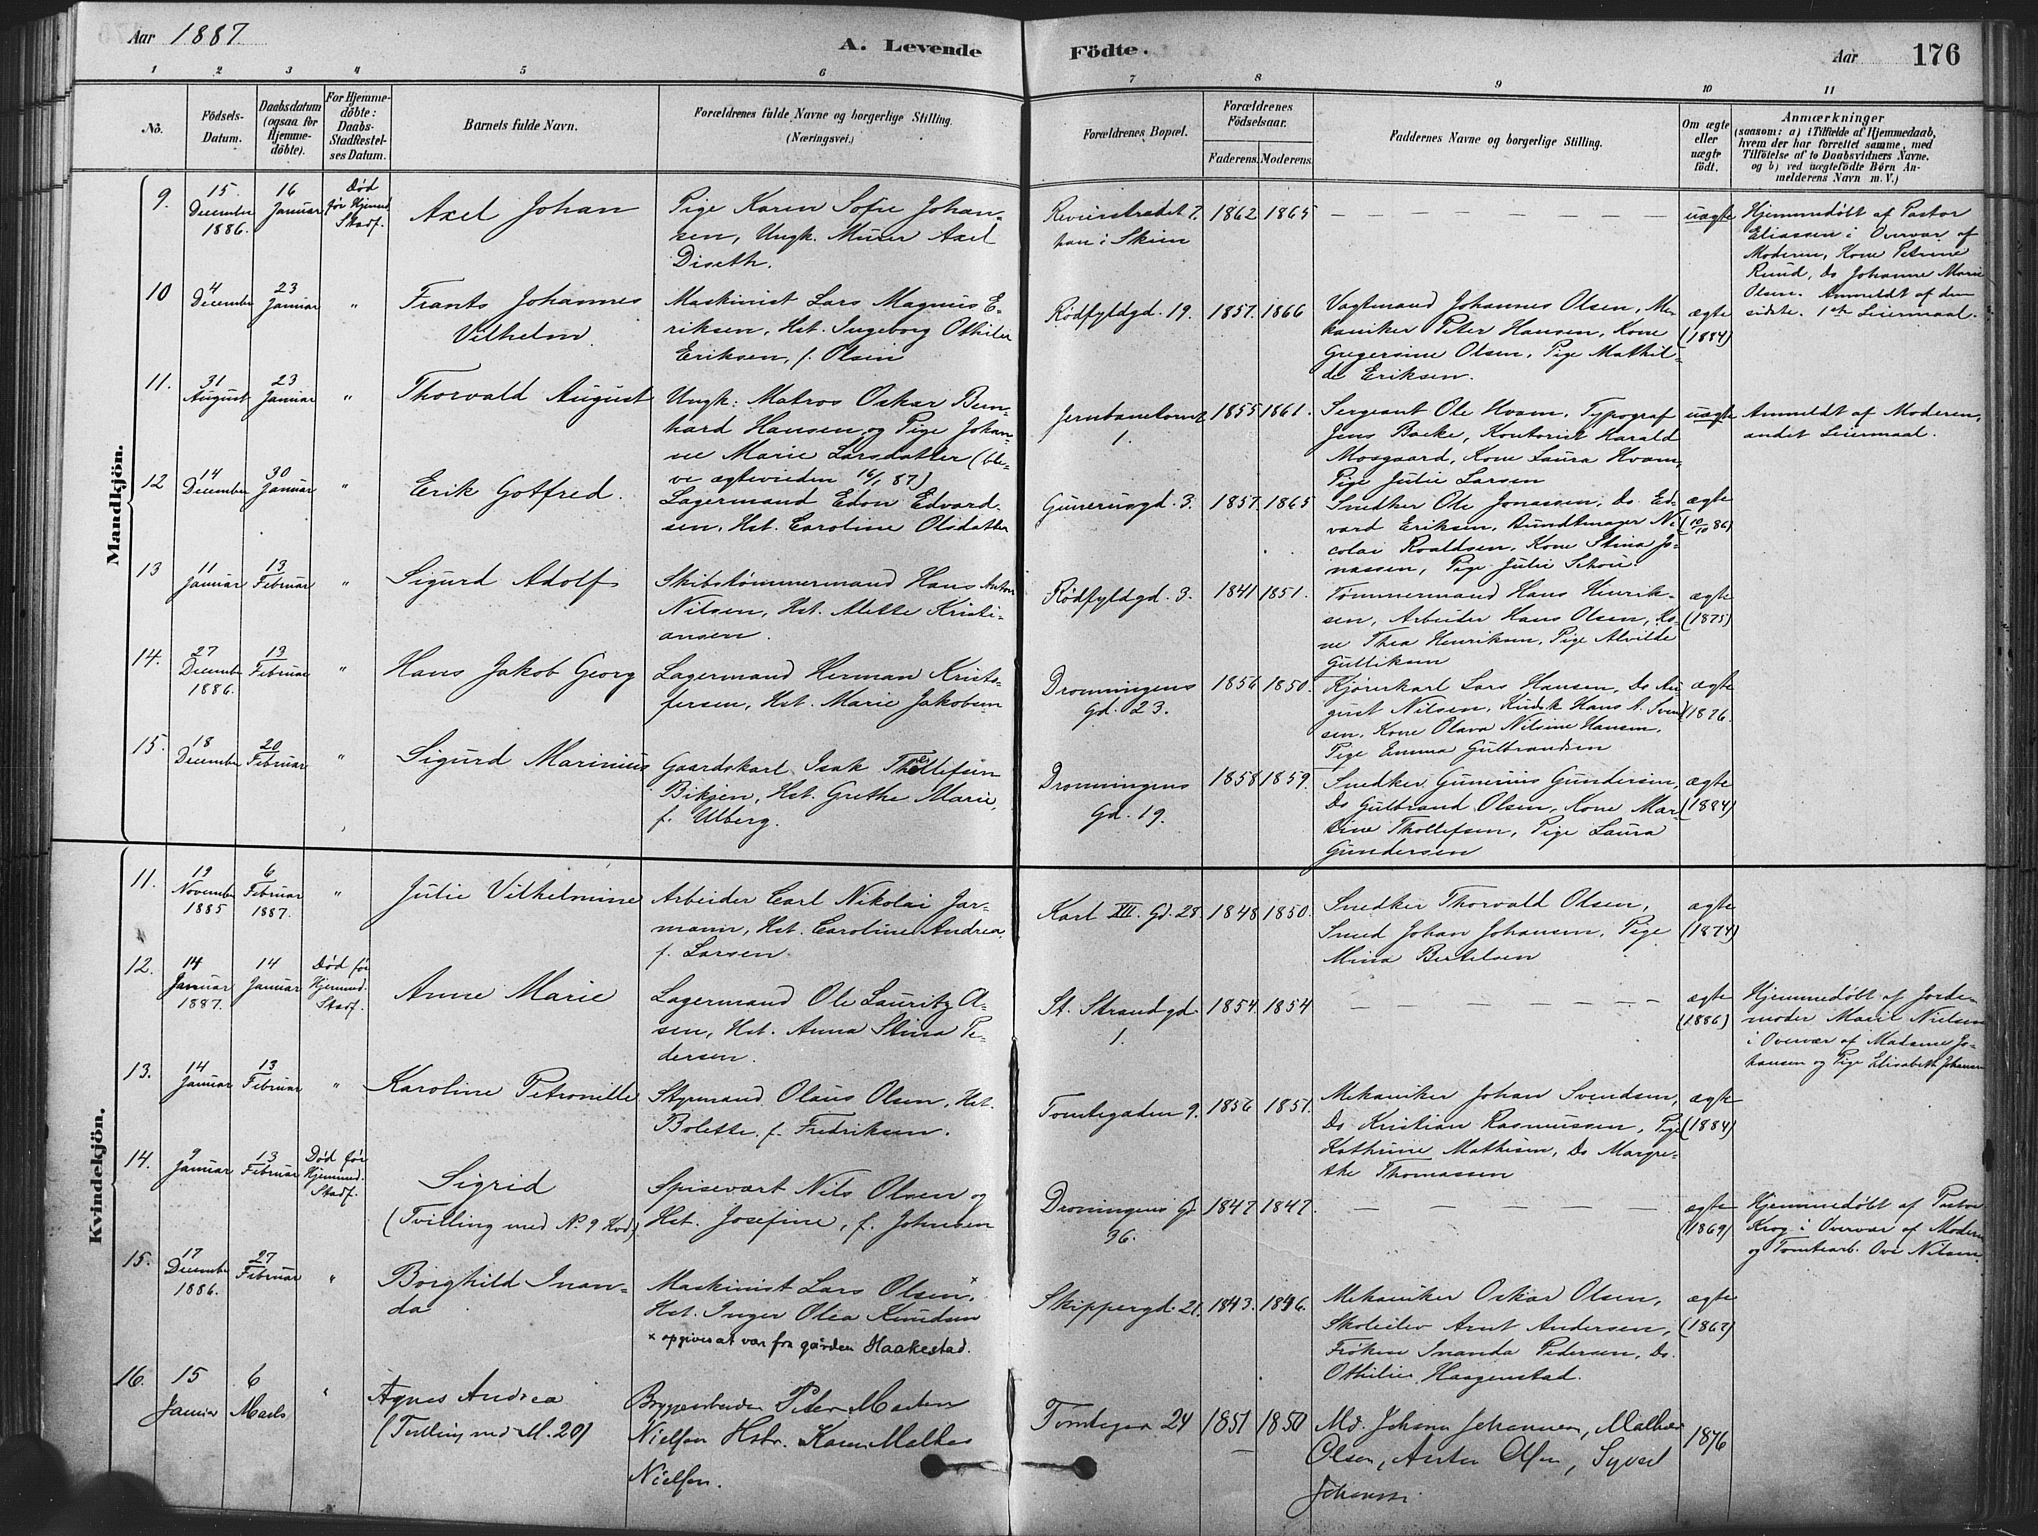 Aar 1887.
A. Levende Födte.
Aar 176
1 2 3 4 5 6 7 8 9 10 11
No.
Födsels-
Datum.
Daabsdatum
(ogsaa for
Hjemme-
döbte).
For Hjemme-
döbte:
Daabs-
StadfæsteI-
ses Datum.
Barnets fulde Navn.
Forældrenes fulde Navne og borgerlige Stilling.
(Næringsvei.)
Forældrenes Bopæl.
Forældrenes
Födselsaar.
Faderens. Moderens.
Faddernes Navne og borgerlige Stilling.
Om ægte
eller
uægte
födt.
Anmærkninger
(saasom: a) i Tilfælde af Hjemmedaab,
hvem der har forrettet samme, med
Tilföielse af to Daabsvidners Navne.
og b) ved uægtefödte Börn An-
melderens Navn m. V.)
Mandkjön.
9. 15 December 1886. 16 Januar Död før Hjemmed. Stadf.
Axel Johan
Pige Karen Sofie Johan-
sen, Ungk. Murer Axel
Diseth.
1862 1865
uægte
Hjemmedøbt af Pastor
Eliassen i Overvær af
Moderen, Kone Petrine
Ruud, Do Johanne Marie
Olsen. Anmeldt af den
sidste. 1ste Leiermaal.
10 4 December 23 Januar "
Frants Johannes
Vilhelm.
Maskinist Lars Magnus E-
riksen, Hst. Ingeborg Othilie
Eriksen, f. Olsen
Rødfyldgd. 19. 1857. 1866
Vagtmand Johannes Olsen, Me-
kaniker Peter Hansen, Kone
Gregersine Olsen, Pige Mathil-
de Eriksen.
ægte
(1884)
11. 31 August 23 Januar "
Thorvald August
Ungk. Matros Oskar Bern-
hard Hansen og Pige Johan-
ne Marie Larsdatter (ble-
ve ægteviede 16/1 87)
1. 1855 1861.
Sergeant Ole Hvam, Typograf
Jens Bakke, Kontorist Harald
Mosgaard, Kone Laura Hvam,
Pige Julie Larsen
uægte
Anmeldt af Moderen,
andet Leiermaal.
12 14 December 30 Januar "
Erik Gotfred.
Lagermand Edvard-
sen, Hst. Caroline Olsdatter
Gunerusgd. 3. 1857. 1865
Snedker Ole Jonassen, Do. Ed-
vard Eriksen, Bundtmager Ni-
colai Roaldsen, Kone Stina Jo-
nassen, Pige Julie Schou
ægte
(10/10 86)
13 11 Januar 13 Februar "
Sigurd Adolf
Skibstømmermand Hans Anton
Nilsen, Hst. Mette Kristi-
ansen.
Rødfyldgd. 3. 1841 1851.
Tømmermand Hans Henrik-
sen, Arbeider Hans Olsen, Ko-
ne Thea Henriksen, Pige Alvilde
Gulliksen
ægte
(1875)
14. 27 December 1886. 13 Februar "
Hans Jakob Georg
Lagermand Herman Kristo-
fersen, Hst. Marie Jakobsen
Dronningens
Gd. 23. 1856 1850.
Kjørerkarl Lars Hansen, Do Au-
gust Nilsen, Kudsk Hans A. Svend-
sen, Kone Olava Nilsine Hansen,
Pige Emma Gulbrandsen
ægte
1876.
15. 18 December 20 Februar "
Sigurd Marinius
Gaardskarl Isak Thollefsen
Bikjen, Hst. Grethe Marie,
f. Ulberg.
Dronningens
Gd. 19. 1858 1859.
Snedker Gunerius Gundersen,
Do Gulbrand Olsen, Kone Mar-
Thollefsen, Pige Laura
Gundersen
ægte
(1884)
Kvindekjön.
11. 19 November 1885 6 Februar 1887. "
Julie Vilhelmine
Arbeider Carl Nikolai Jor-
mann, Hst. Caroline Andrea,
f. Larsen.
Karl XII. Gd. 28 1848 1850.
Snedker Thorvald Olsen,
Smed Johan Johansen, Pige
Mina Bertelsen
ægte
(1874)
12. 14 Januar 1887. 14 Januar Død før Hjemmed. Stadf.
Anne Marie
Lagermand Ole Lauritz A-
sen, Hst. Anna Stina Pe-
dersen.
St. Strandgd.
1. 1854 1854
ægte
(1886)
Hjemmedøbt af Jorde-
moder Marie Nielsen
i Overvær af Madame Jo-
hansen og Pige Elisabeth Johansen
13. 14 Januar 13 Februar "
Karoline Petronille
Styrmand Olaus Olsen, Hst.
Bolette f. Fredriksen.
Tomtegaden 9. 1856 1851.
Mekaniker Johan Svendsen,
Do Kristian Rasmussen, Pige
Kathrine Mathisen, Do Margre-
the Thomassen
ægte
(1884)
14. 9 Januar 13 Februar Død før Hjemmed. Stadf.
Sigrid
(Tvilling med No. 9 )
Spisevært Nils Olsen og
Hst. Josefine, f. Johnsen
Dronningens Gd
36. 1847 1847.
ægte
(1869)
Hjemmedøbt af Pastor
Krog i Overvær af Moderen
og Tomtearb. Ove Nilsen.
15. 17 December 1886. 27 Februar "
Borghild Inan-
da
Maskinist Lars Olsen, x
Hst. Inger Olea Knudsen
x opgives at vær fra gården Haakestad.
Skippergd. 21. 1843. 1846.
Mekaniker Oskar Olsen,
Skoleelev Arnt Andersen,
Frøken Inanda Pedersen, Do.
Othilie Haagenstad.
ægte
(1867)
16. 15 Januar 6 Marts "
Agnes Andrea
(Tvilling med M. 20)
Bryggearbeider Peter Martin
Nielsen Hstr. Karen Mathea
Nielsen.
Tomtegad 24 1851 1850
Johan Johannesen, Mathea
Olsen, Anton Olsen,
1876